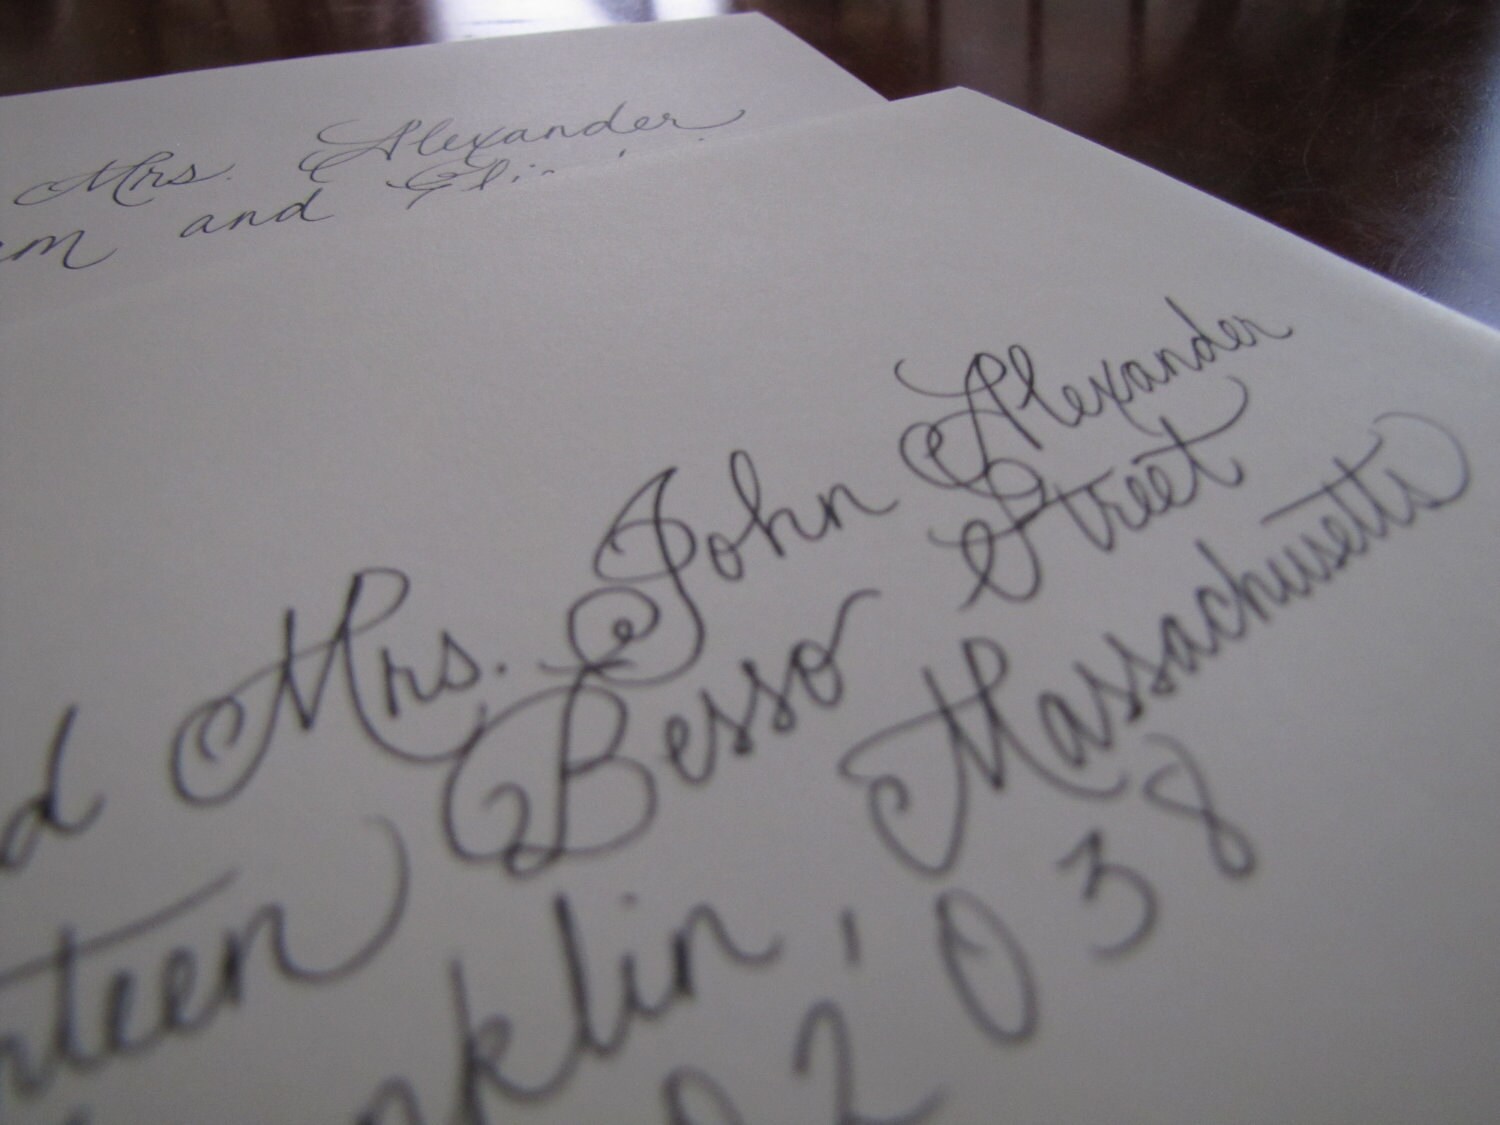 Mrs. Alexander
and
Mrs. John Alexander
Besso Street
nklin, Massachusetts
02038